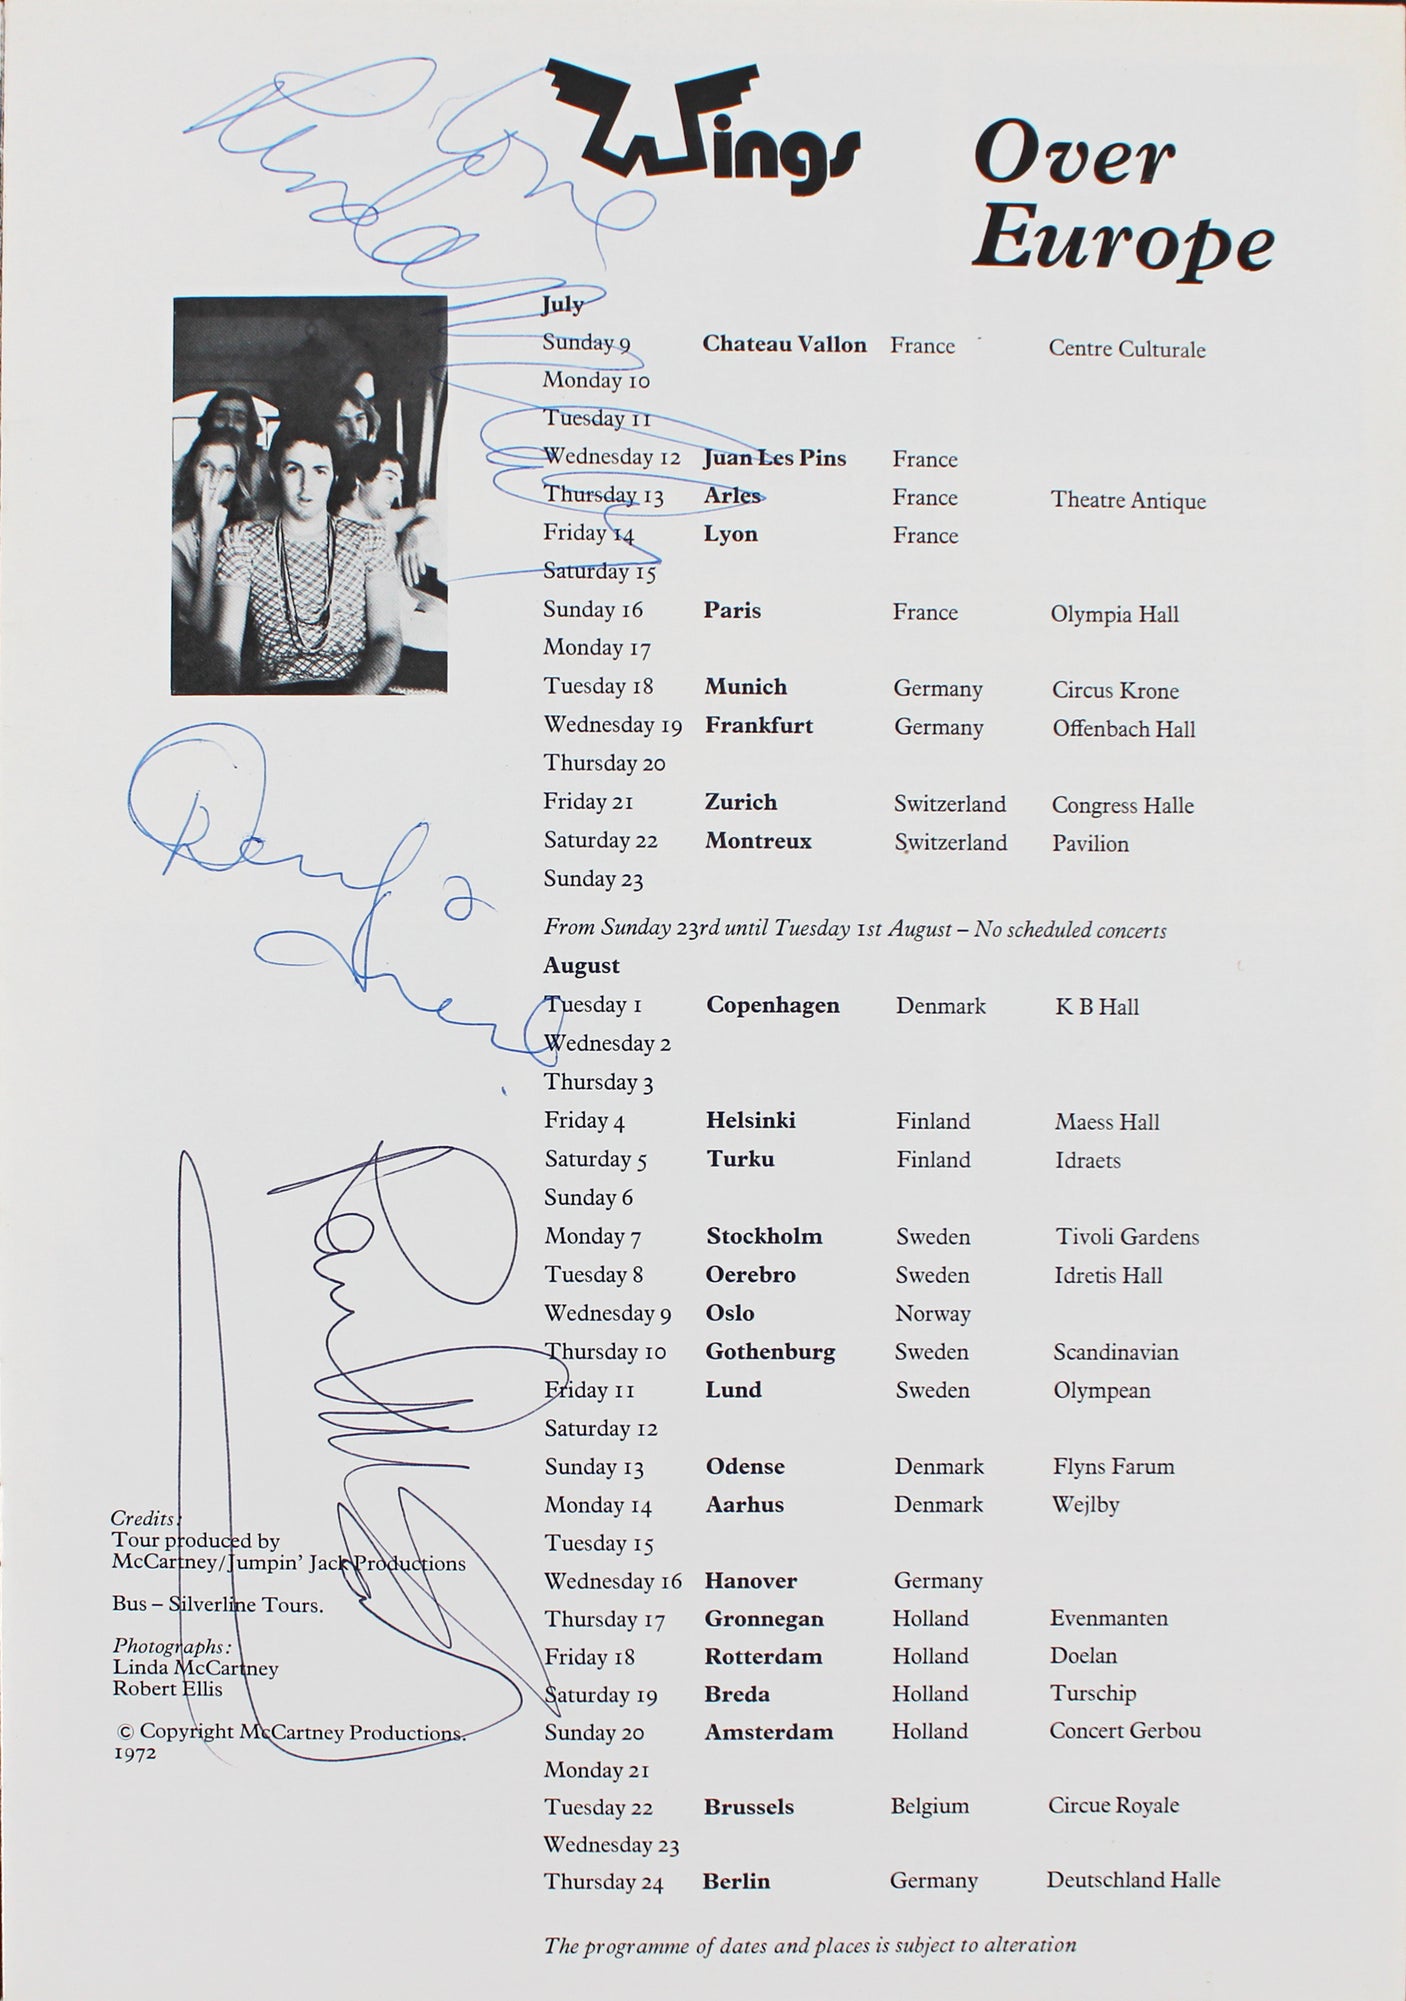 Wings
Over
Europe
July
Sunday 9 Chateau Vallon France Centre Culturale
Monday 10
Tuesday 11
Wednesday 12 Juan Les Pins France
Thursday 13 Arles France Theatre Antique
Friday 14 Lyon France
Saturday 15
Sunday 16 Paris France Olympia Hall
Monday 17
Tuesday 18 Munich Germany Circus Krone
Wednesday 19 Frankfurt Germany Offenbach Hall
Thursday 20
Friday 21 Zurich Switzerland Congress Halle
Saturday 22 Montreux Switzerland Pavilion
Sunday 23
From Sunday 23rd until Tuesday 1st August – No scheduled concerts
August
Tuesday 1 Copenhagen Denmark K B Hall
Wednesday 2
Thursday 3
Friday 4 Helsinki Finland Maess Hall
Saturday 5 Turku Finland Idraets
Sunday 6
Monday 7 Stockholm Sweden Tivoli Gardens
Tuesday 8 Oerebro Sweden Idretis Hall
Wednesday 9 Oslo Norway
Thursday 10 Gothenburg Sweden Scandinavian
Friday 11 Lund Sweden Olympean
Saturday 12
Sunday 13 Odense Denmark Flyns Farum
Monday 14 Aarhus Denmark Wejlby
Tuesday 15
Wednesday 16 Hanover Germany
Thursday 17 Gronnegan Holland Evenmanten
Friday 18 Rotterdam Holland Doelan
Saturday 19 Breda Holland Turschip
Sunday 20 Amsterdam Holland Concert Gerbou
Monday 21
Tuesday 22 Brussels Belgium Circue Royale
Wednesday 23
Thursday 24 Berlin Germany Deutschland Halle
The programme of dates and places is subject to alteration
Linda
Love
Denny
Paul
Credits:
Tour produced by
McCartney/Jumpin' Jack Productions
Bus – Silverline Tours.
Photographs:
Linda McCartney
Robert Ellis
© Copyright McCartney Productions.
1972